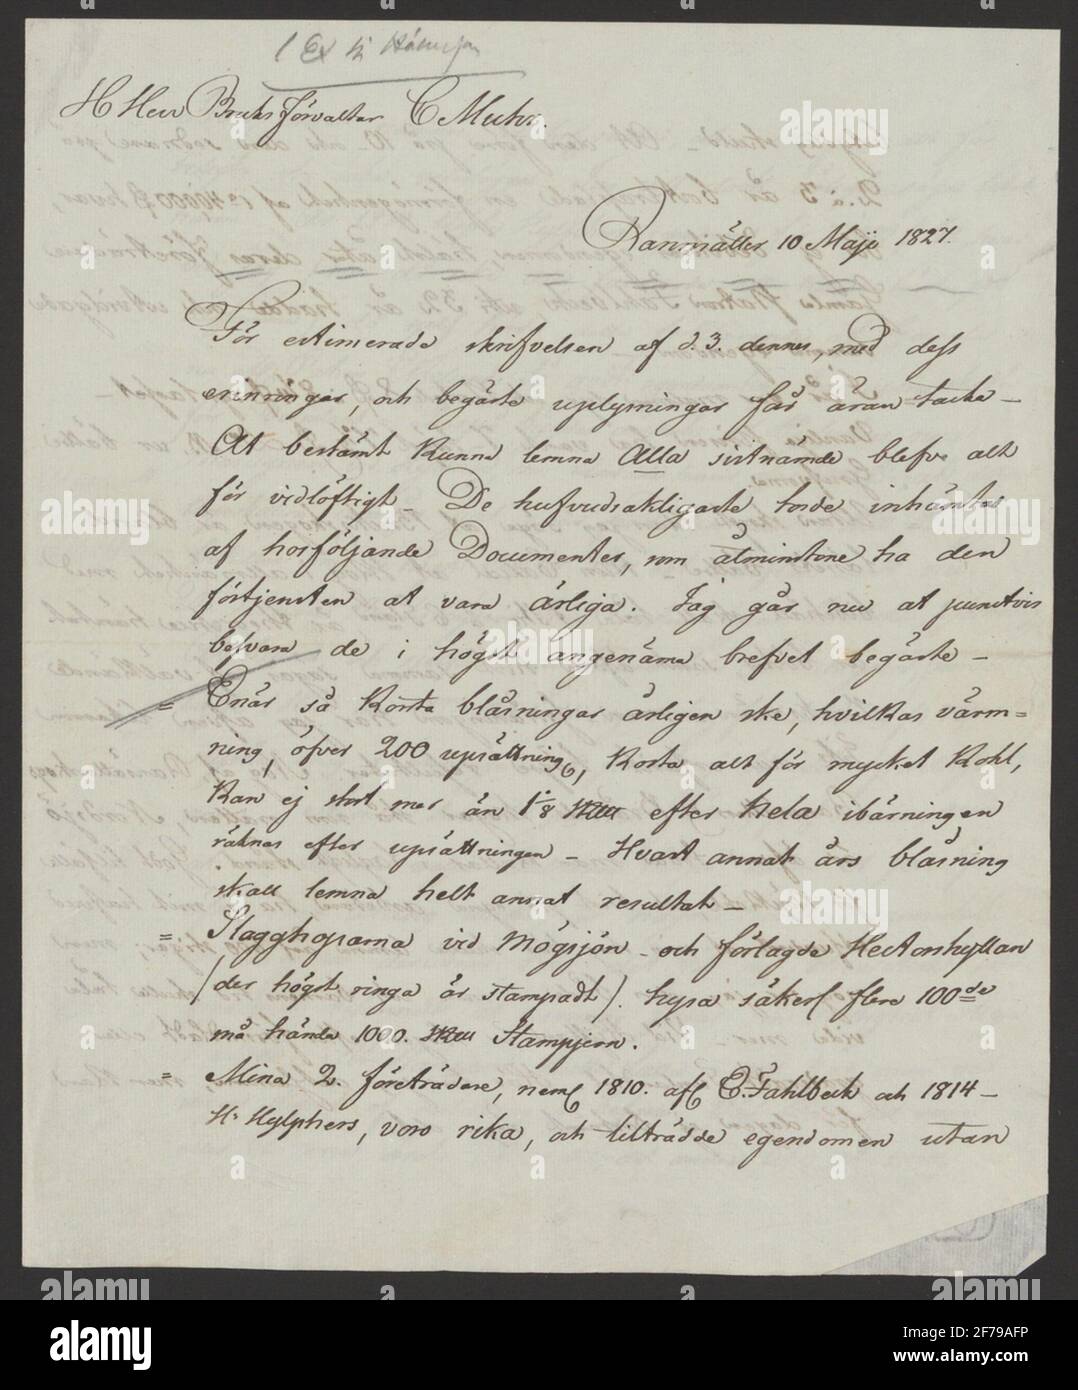 1 Ex
H Herr Bruks förvalter C Muhr.
Ransäter 10 Maji 1827.
För estimerade skrifvelsen af d. 3. dennes, med dess
erinringar, och begärte uplysningar får äran tacka –
At bestämt kunna lemna Alla sistnämde blefve alt
för vidlöftigt – De hufvudsakligaste torde inhämtas
af hosföljande Documenter, som åtminstone ha den
förtjensten at vara ärliga. Jag går nu at punctvis
besvara de i högst angenäma brefvet begärte –
= Enär så korta blåsningar årligen ske, hvilkas värm=
ning, öfver 200 upsättning, kosta alt för mycket Kohl,
kan ej stort mer än 1:8 efter hela ibärningen
räknas efter upsättningen – Hvart annat års blåsning
skall lemna helt annat resultat –
= Slagghoparna vid Mögsjön – och förlagde Hectorshyttan
/der högst ringa är stampadt/. hysa säkerl flere 100de
må hända 1000. Stampjern.
= Mina 2. företrädare, neml 1810. afl E. Fahlbeck och 1814 –
Hr Hylphers, voro rika, och tillträdde egendomen utan
alamy
alamy
Image ID: 2F79AFP
www.alamy.com